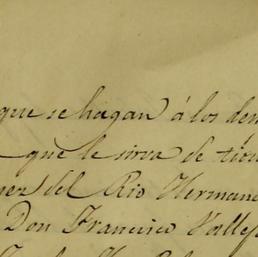 que se hagan á los dem
que le sirva de
nez del Rio Herman
Don Francisco Vallej